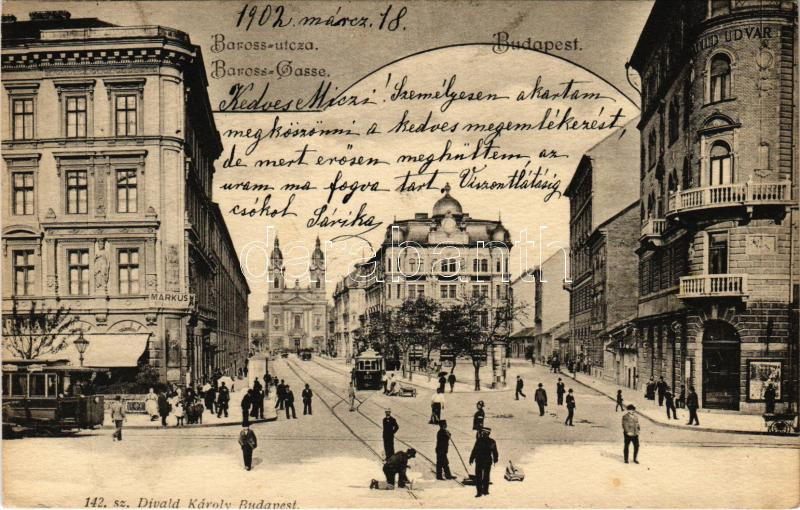 1902. márcz. 18.
Baross-utcza.
Budapest.
Baross-Gasse.
Kedves Miczi! Személyesen akartam
megköszönni a kedves megemlékezést
de mert erősen meghültem, az
uram ma fogva tart Viszontlátásig
csókol Sárika
UDVAR
MARKUS
darabanth
142. sz. Divald Károly Budapest.